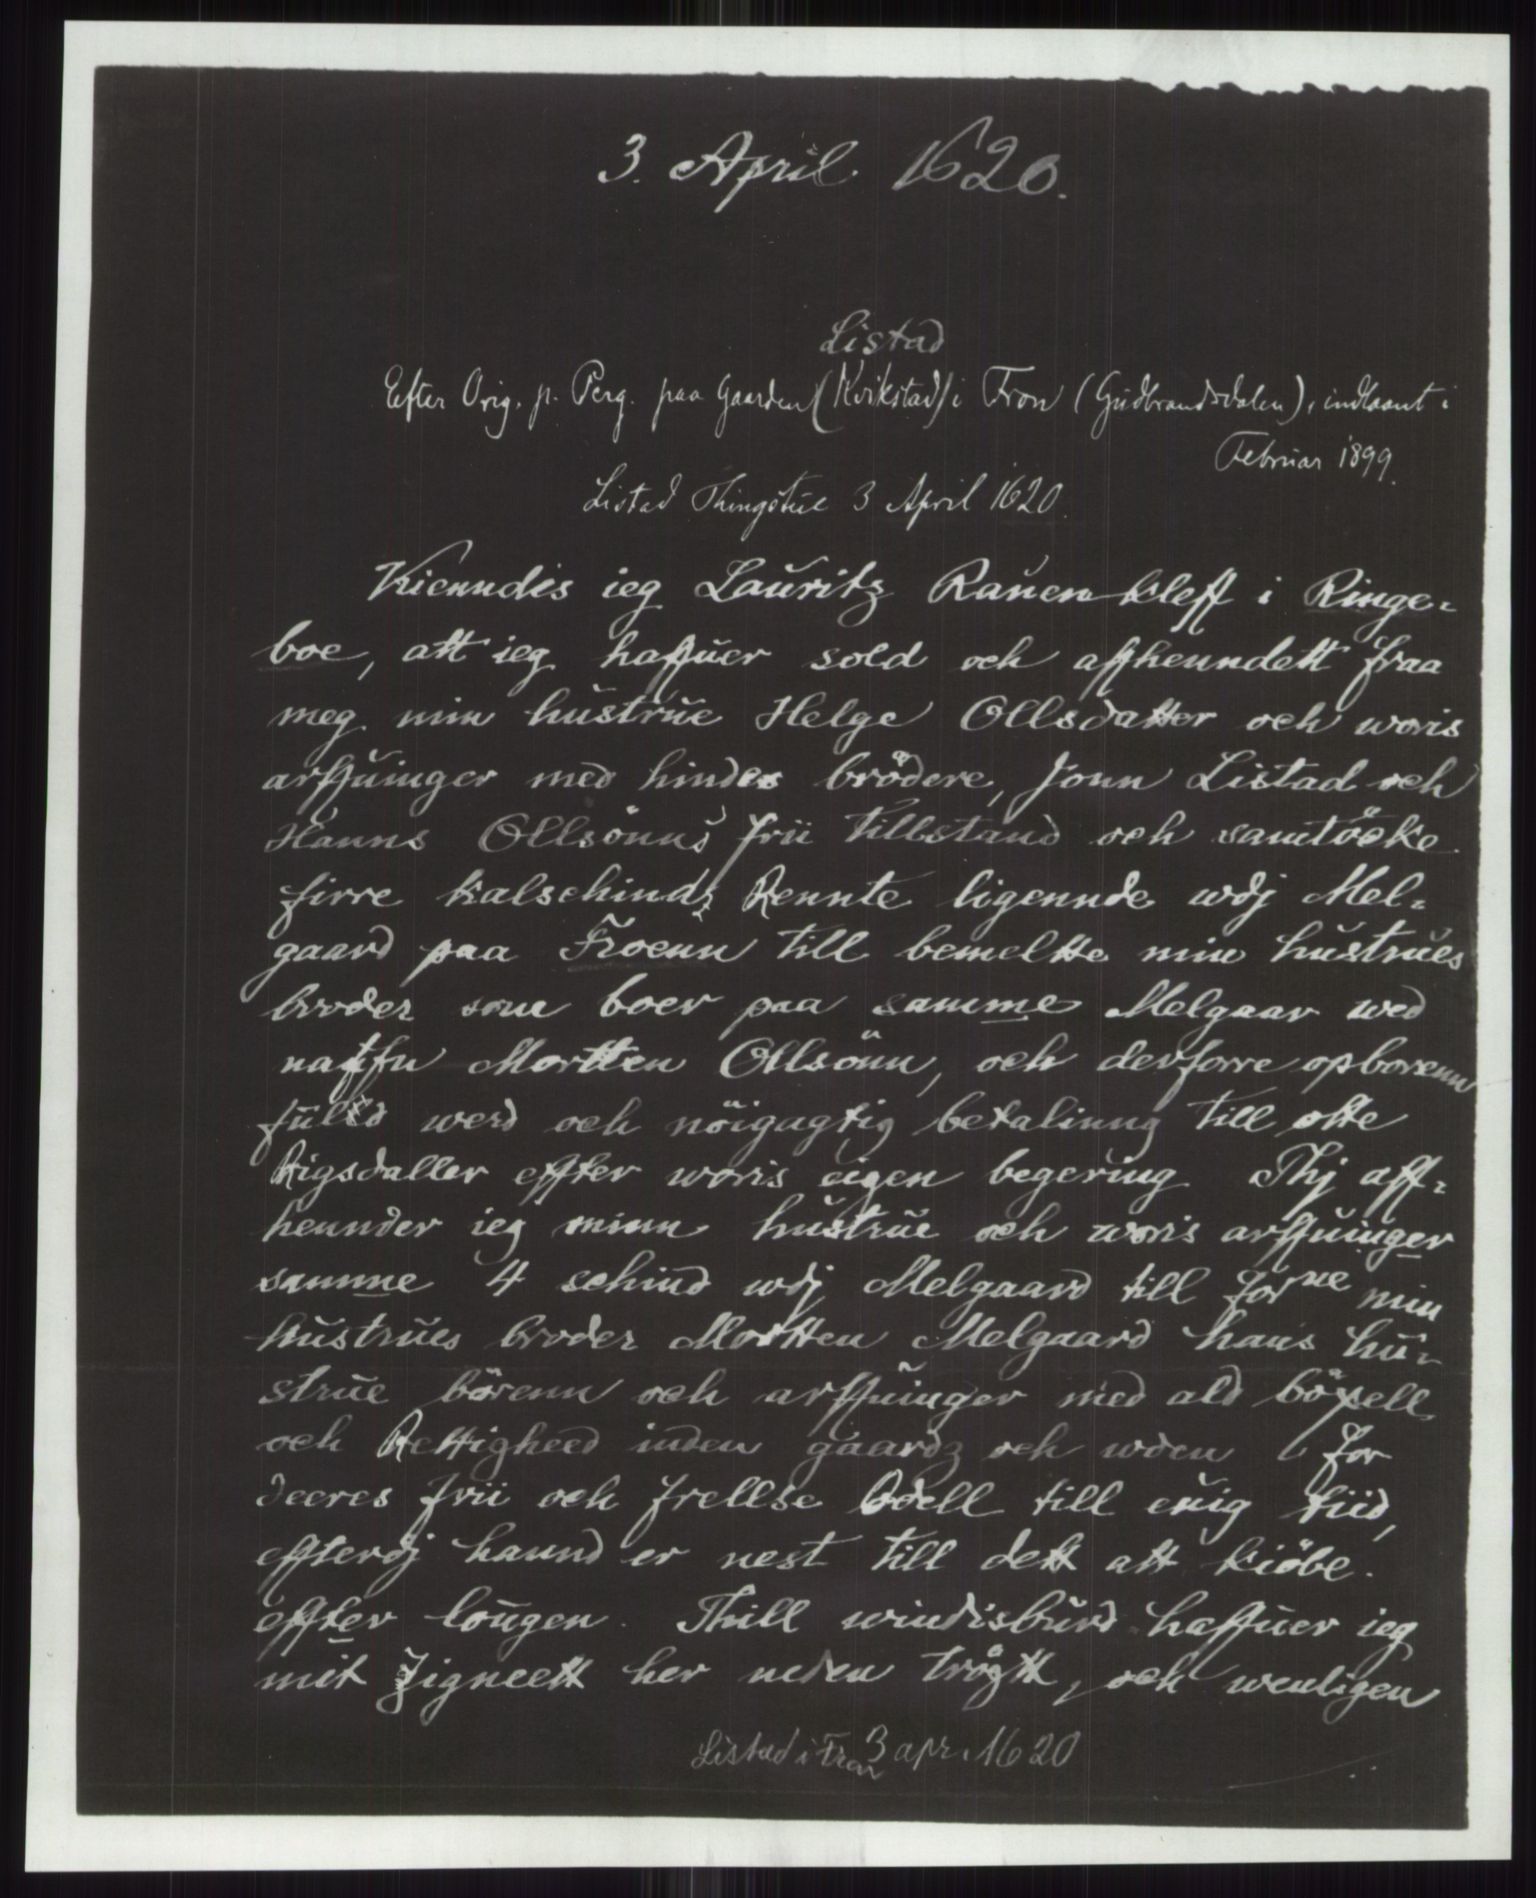 3. April 1620.
Listad
Efter Orig. p. Perg. paa Gaarden (Kvikstad) i Fron (Gudbrandsdalen), indlaant i
Februar 1899.
Listad Thingstue 3 April 1620.
Kienndis ieg Lauritz Rauenkleff i Ringe-
boe, att ieg haffuer sold och affhenndett fraa
meg min hustrue Helge Ollsdatter och woris
arffuinger med hindes brödere, Jonn Listad och
Hanns Ollsönns frii tillstand och samtöcke
firre kalschindz Rennte ligennde wdj Mel-
gaard paa Froenn till bemeltte min hustrues
broder som boer paa samme Melgaar wed
naffn Mortten Ollsönn, och derforre opborenn
fuld werd och nöigagtig betalinng till otte
Rigsdaller effter woris eigen begering Thj aff-
hennder ieg minn hustrue och woris arffuinger
samme 4 schind wdj Melgaard till forne min
hustrues broder Mortten Melgaard hans hu-
strue börenn och arffuinger med ald böxell
och Rettigheed inden gaardz och uden for
deeres frii och frellse Odell till euig tiid,
effterdj hannd er nest till dett att kiöbe
effter lougen. Thill windisburd haffuer ieg
mit Zigneett her neden trögtt, och wenligen
Listad i Fron 3 apr. 1620